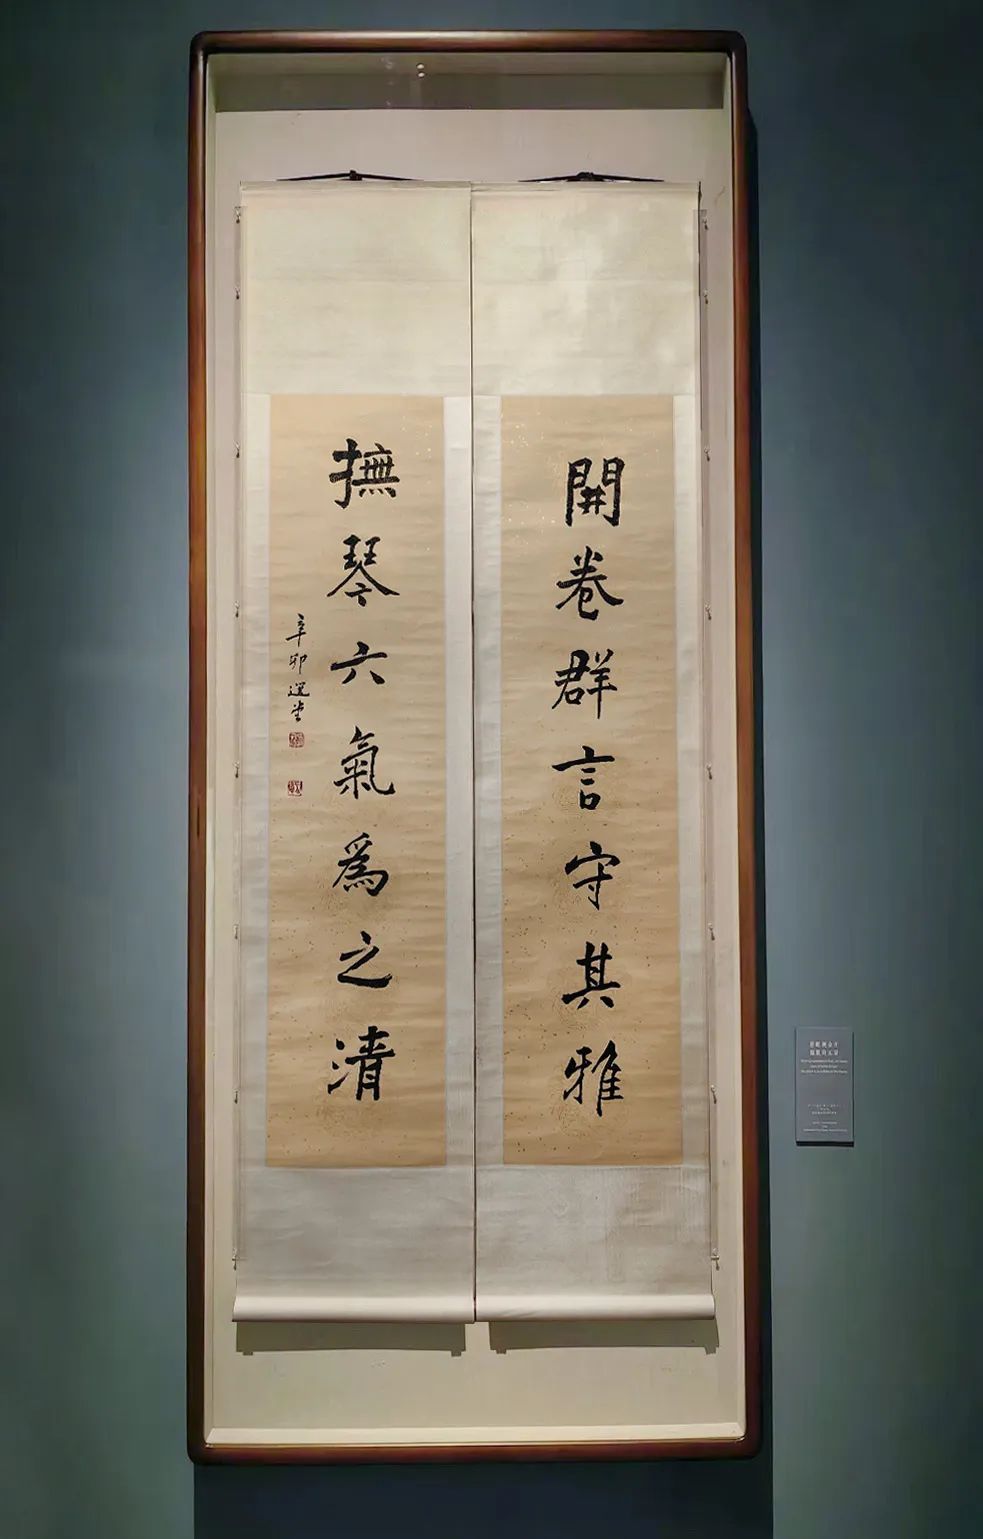 開卷群言守其雅
撫琴六氣為之清
辛卯選堂